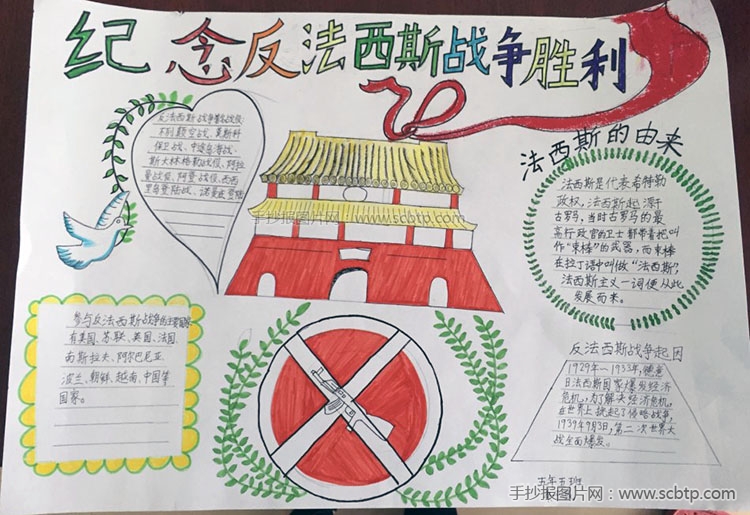 纪念反法西斯战争胜利
反法西斯战争著名战役:
不列颠空战、莫斯科
保卫战、中途岛海战、
斯大林格勒战役、阿拉
曼战役、阿登战役、西西
里岛登陆战、诺曼底登陆
法西斯的由来
法西斯是代表希特勒
政权,法西斯起源于
古罗马,当时古罗马的最
高行政官的卫士都带着把叫
作“束棒”的武器,而束棒
在拉丁语中叫做“法西斯”,
法西斯主义一词便从此
发展而来。
手抄报图片网 www.scbtp.com
参与反法西斯战争的主要国家
有美国、苏联、英国、法国、
南斯拉夫、阿尔巴尼亚、
波兰、朝鲜、越南、中国等
国家。
反法西斯战争起因
1929年一1933年,德意
日法西斯国家爆发经济
危机,为了解决经济危机,
在世界上挑起了侵略战争,
1939年9月3日,第二次世界大
战全面爆发。
五年五班
手抄报图片网:www.scbtp.com